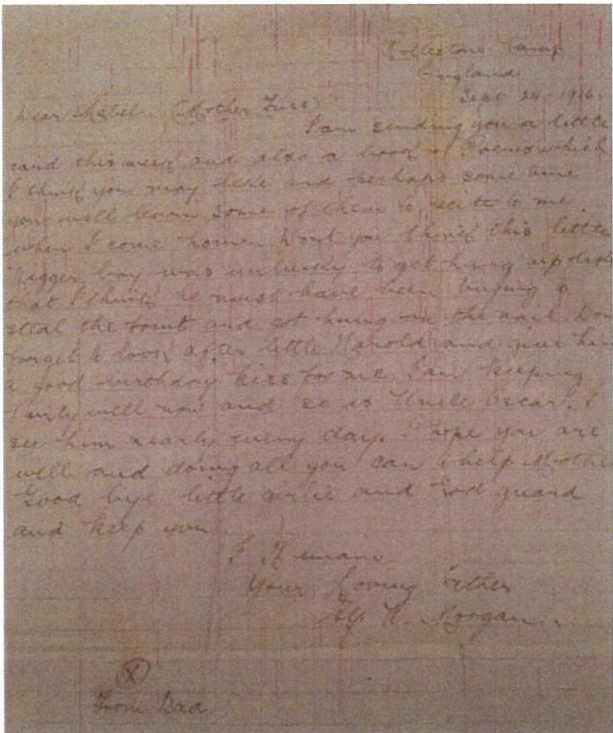 Rollestone Camp
England
Sept 24 - 1916
Dear Mabel. (Mother Fuss)
I am sending you a little
card this week and also a book of Poems which
I think you may like and perhaps some time
you will learn some of them to recite to me
when I come home. Dont you think this little
Nigger boy was unlucky to get hung up like
that I think he must have been trying to
steal the fruit and got hung on the nail Don
forget to look after little Harold and give him
a good birthday kiss for me I am keeping
fairly well now and so is Uncle Oscar. I
see him nearly every day. I hope you are
well and doing all you can to help Mother
Good bye little girlie and God guard
and keep you
I Remain
Your Loving Father
W. Morgan.
X
From Dad.